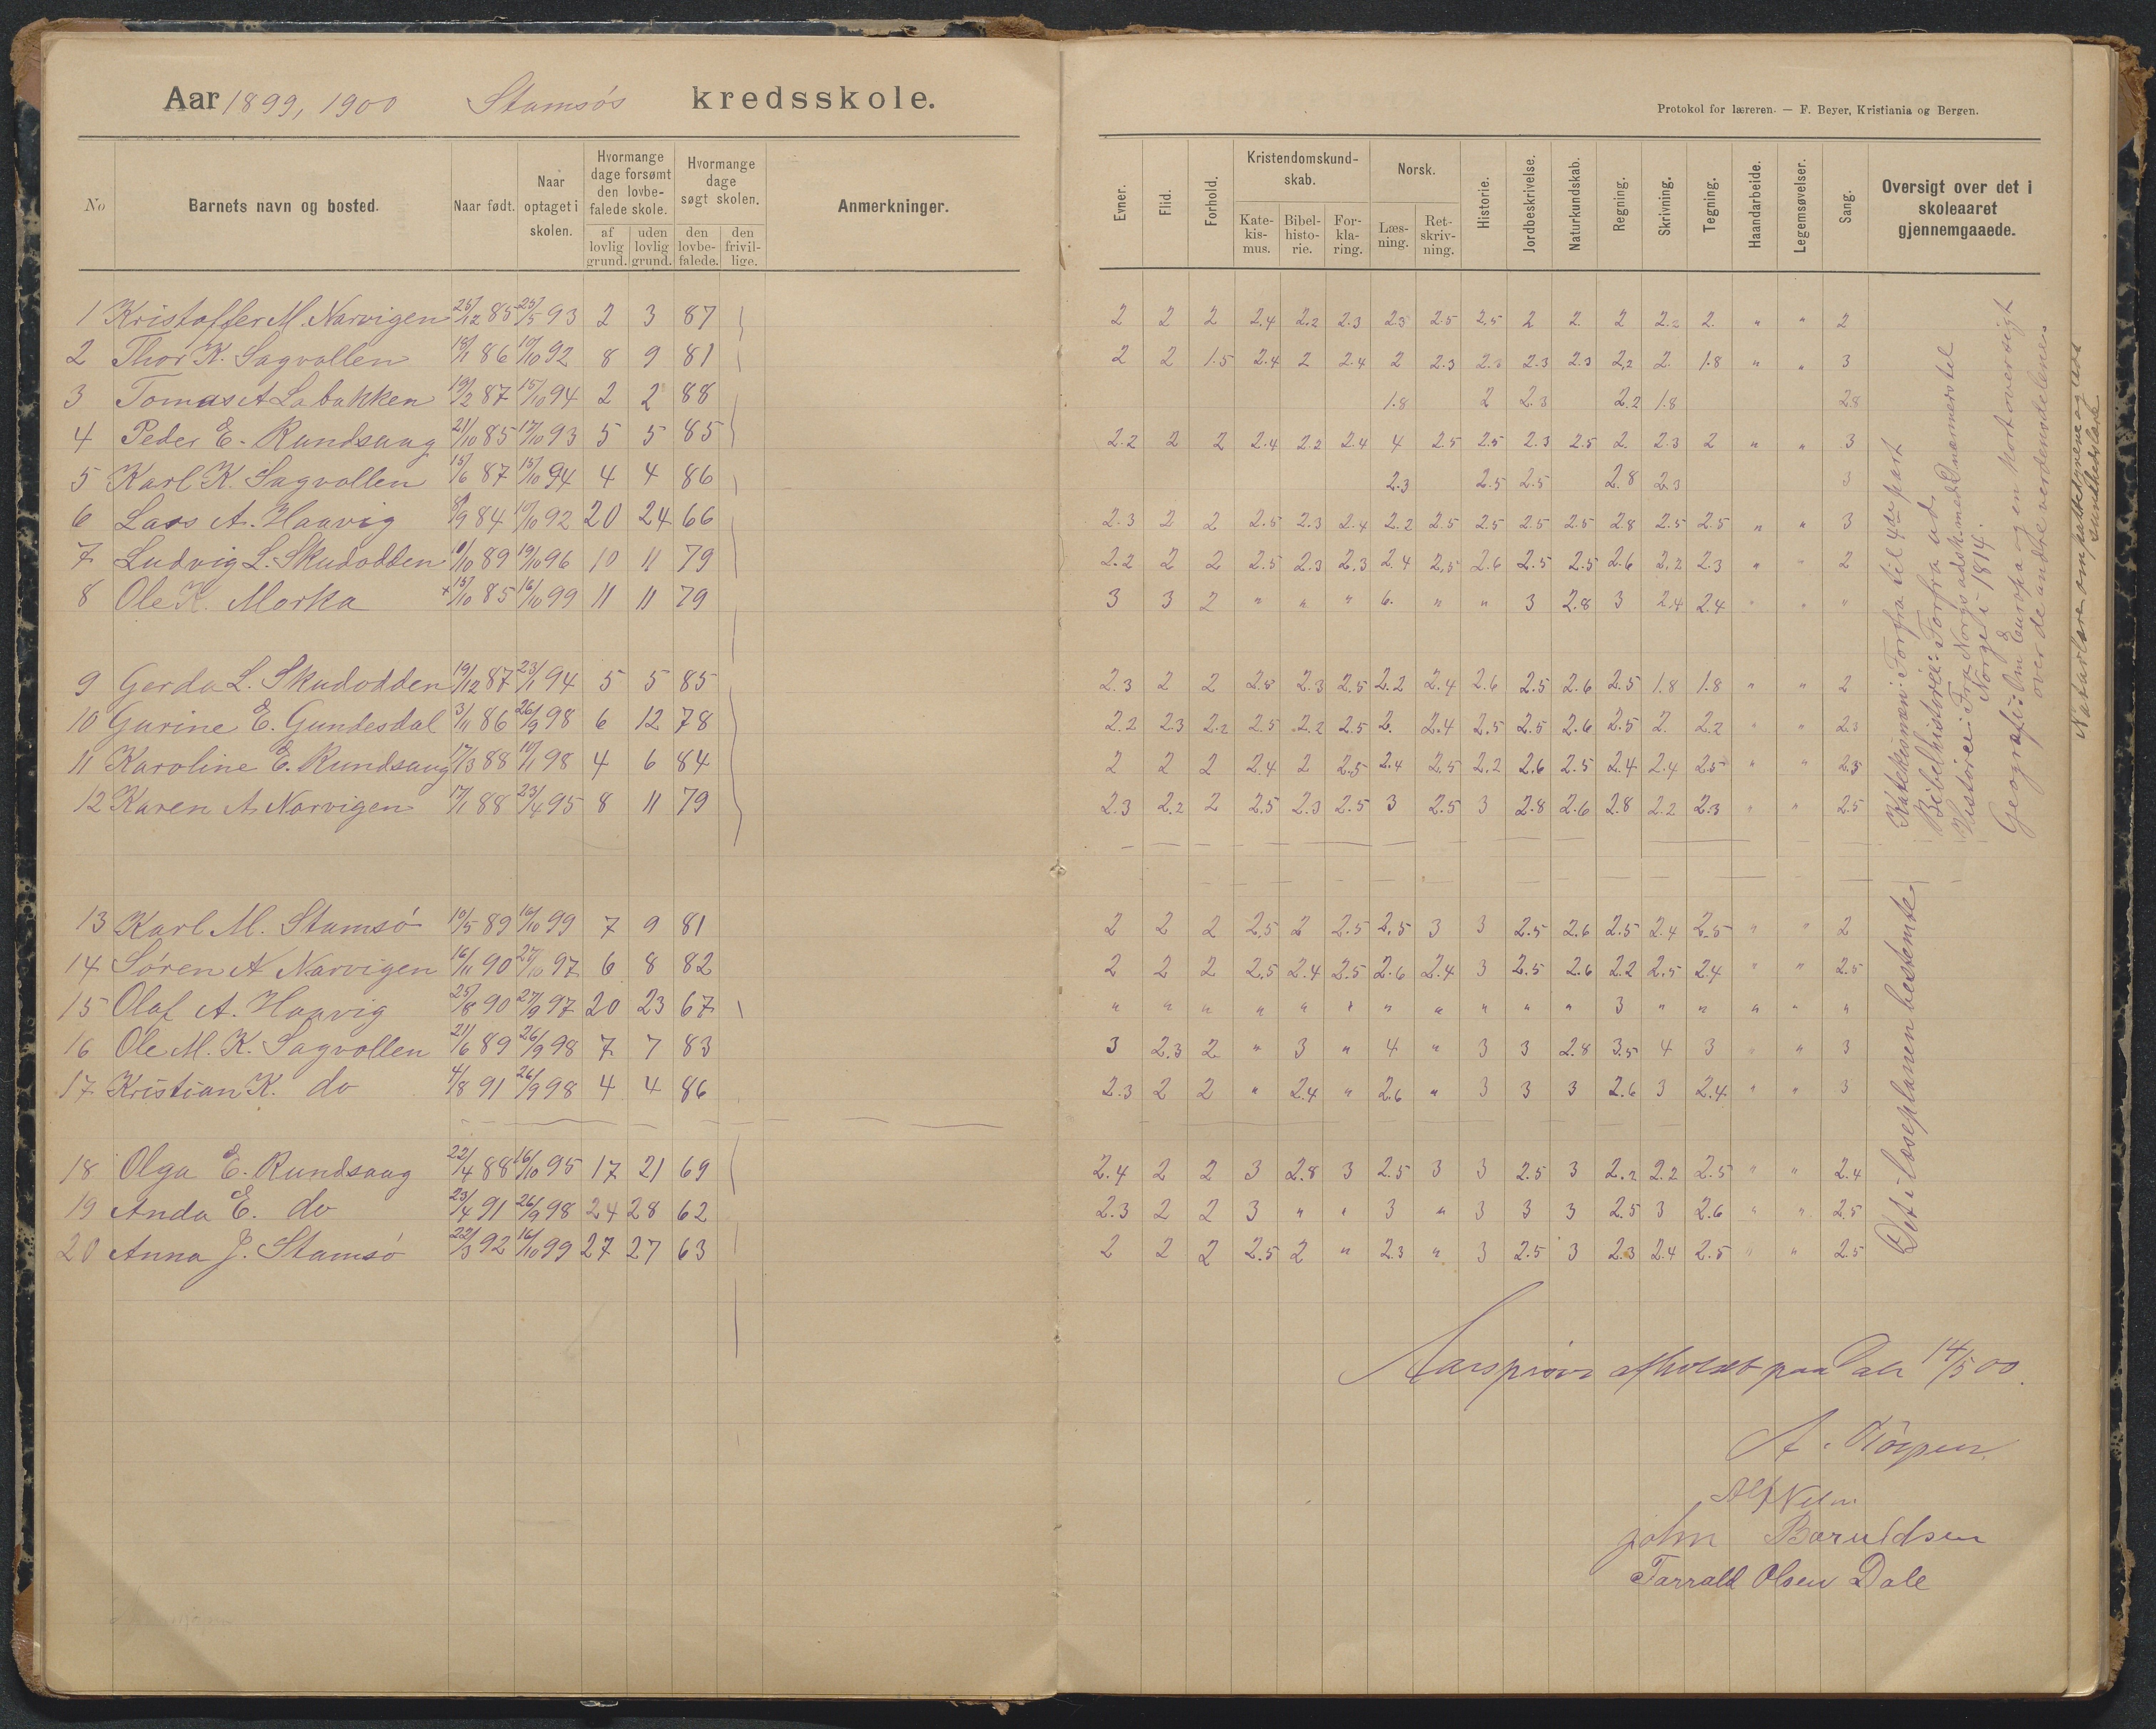 Aar 1899, 1900 Stamsøs kredsskole.
Protokol for læreren. — F. Beyer, Kristiania og Bergen.
No Barnets navn og bosted. Naar født. Naar optaget i skolen. Hvormange dage forsømt den lovbefalede skole. af lovlig grund. uden lovlig grund. Hvormange dage søgt skolen. den lovbefalede. den frivillige. Anmerkninger.
Evner. Flid. Forhold. Kristendomskundskab. Katekismus. Bibelhistorie. Forklaring. Norsk. Læsning. Retskrivning. Historie. Jordbeskrivelse. Naturkundskab. Regning. Skrivning. Tegning. Haandarbeide. Legemsøvelser. Sang. Oversigt over det i skoleaaret gjennemgaaede.
1 Kristoffer M. Narvigen 25/12 85 25/5 93 2 3 87 2 2 2 2.4 2.2 2.3 2.3 2.5 2.5 2 2 2 2.2 2. " " 2
2 Thor K. Sagvollen 18/1 86 17/10 92 8 9 81 2 2 1.5 2.4 2 2.4 2 2.3 2.3 2.3 2.3 2,2 2. 1.8 " " 3
3 Tomas A Labakken 19/2 87 15/10 94 2 2 88 1.8 2 2.3 2.2 1.8 2.8
4 Peder E. Rundsaag 21/10 85 17/10 93 5 5 85 2.2 2 2 2.4 2.2 2.4 4 2.5 2.5 2.3 2.5 2. 2.3 2 " " 3
5 Karl K. Sagvollen 15/6 87 15/10 94 4 4 86 2.3 2.5 2.5 2.8 2.3 3
6 Lars A. Haavig 8/9 84 17/10 92 20 24 66 2.3 2 2 2.5 2.3 2.4 2.2 2.5 2.5 2.5 2.5 2.8 2.5 2.5 " " 3
7 Ludvig L. Skudodden 1/10 89 19/10 96 10 11 79 2.2 2 2 2.5 2.3 2.3 2.4 2,5 2.6 2.5 2.5 2.6 2.2 2.3 " " 2
8 Ole K. Morka 15/10 85 16/10 99 11 11 79 3 3 2 " " " 6. " " 3 2.8 3 2.4 2.4 " " "
9 Gerda L. Skudodden 19/12 87 23/1 94 5 5 85 2.3 2 2 2.5 2.3 2.5 2.2 2.4 2.6 2.5 2.6 2.5 1.8 1.8 " " 2
10 Gurine E. Gundesdal 3/11 86 26/9 98 6 12 78 2.2 2.3 2.2 2.5 2.2 2.5 2. 2.4 2.5 2.5 2.6 2.5 2. 2.2 " " 2.3
11 Karoline E. Rundsaag 17/3 88 10/1 98 4 6 84 2 2 2 2.4 2 2.5 2.4 2,5 2.2 2.6 2.5 2.4 2.4 2.5 " " 2.3
12 Karen A. Narvigen 17/1 88 23/4 95 8 11 79 2.3 2.2 2 2.5 2.3 2.5 3 2.5 3 2.8 2.6 2.8 2.2 2.3 " " 2.5
13 Karl M. Stamsø 10/5 89 16/10 99 7 9 81 2 2 2 2,5 2 2.5 2.5 3 3 2.5 2.6 2.5 2.4 2.5 " " 2
14 Søren A Narvigen 16/11 90 27/10 97 6 8 82 2 2 2 2,5 2.4 2.5 2.6 2.4 3 2.5 2.6 2.2 2.5 2.4 " " 2.5
15 Olaf A. Haavig 25/8 90 27/9 97 20 23 67 " " " " " " " " " " " 3 " " " " "
16 Ole M. K. Sagvollen 21/6 89 26/9 98 7 7 83 3 2.3 2 " 3 " 4 " 3 3 2.8 3.5 4 3 " " 3
17 Kristian K. do 4/8 91 26/9 98 4 4 86 2.3 2 2 " 2.4 " 2.6 " 3 3 3 2.6 3 2.4 " " 3
18 Olga E. Rundsaag 22/4 88 16/10 95 17 21 69 2.4 2 2 3 2.8 3 2.5 3 3 2.5 3 2.2 2.2 2.5 " " 2.4
19 Anda E. do 23/4 91 26/9 98 24 28 62 2.3 2 2 3 " " 3 " 3 3 3 2.5 3 2.6 " " 2.5
20 Anna J. Stamsø 22/3 92 16/10 99 27 27 63 2 2 2 2.5 2 " 2.3 " 3 2.5 3 2.3 2.4 2.5 " " 2.5
Katekismen: Forfra til 4de part
Bibelhistorie: Forfra ud.
Historie: Fra Norges adskil med Danemark til
Norge i 1814.
Geografi: Om Europa og en kort oversigt
over de andre verdensdelene.
Naturlære om pattedyrene og lidt
sundhedslære
Det i læseplanen bestemte
Aarsprøve afholdt paa Dale 14/5 00.
A.
Alf
John Baruldsen
Tarrald Olsen Dale